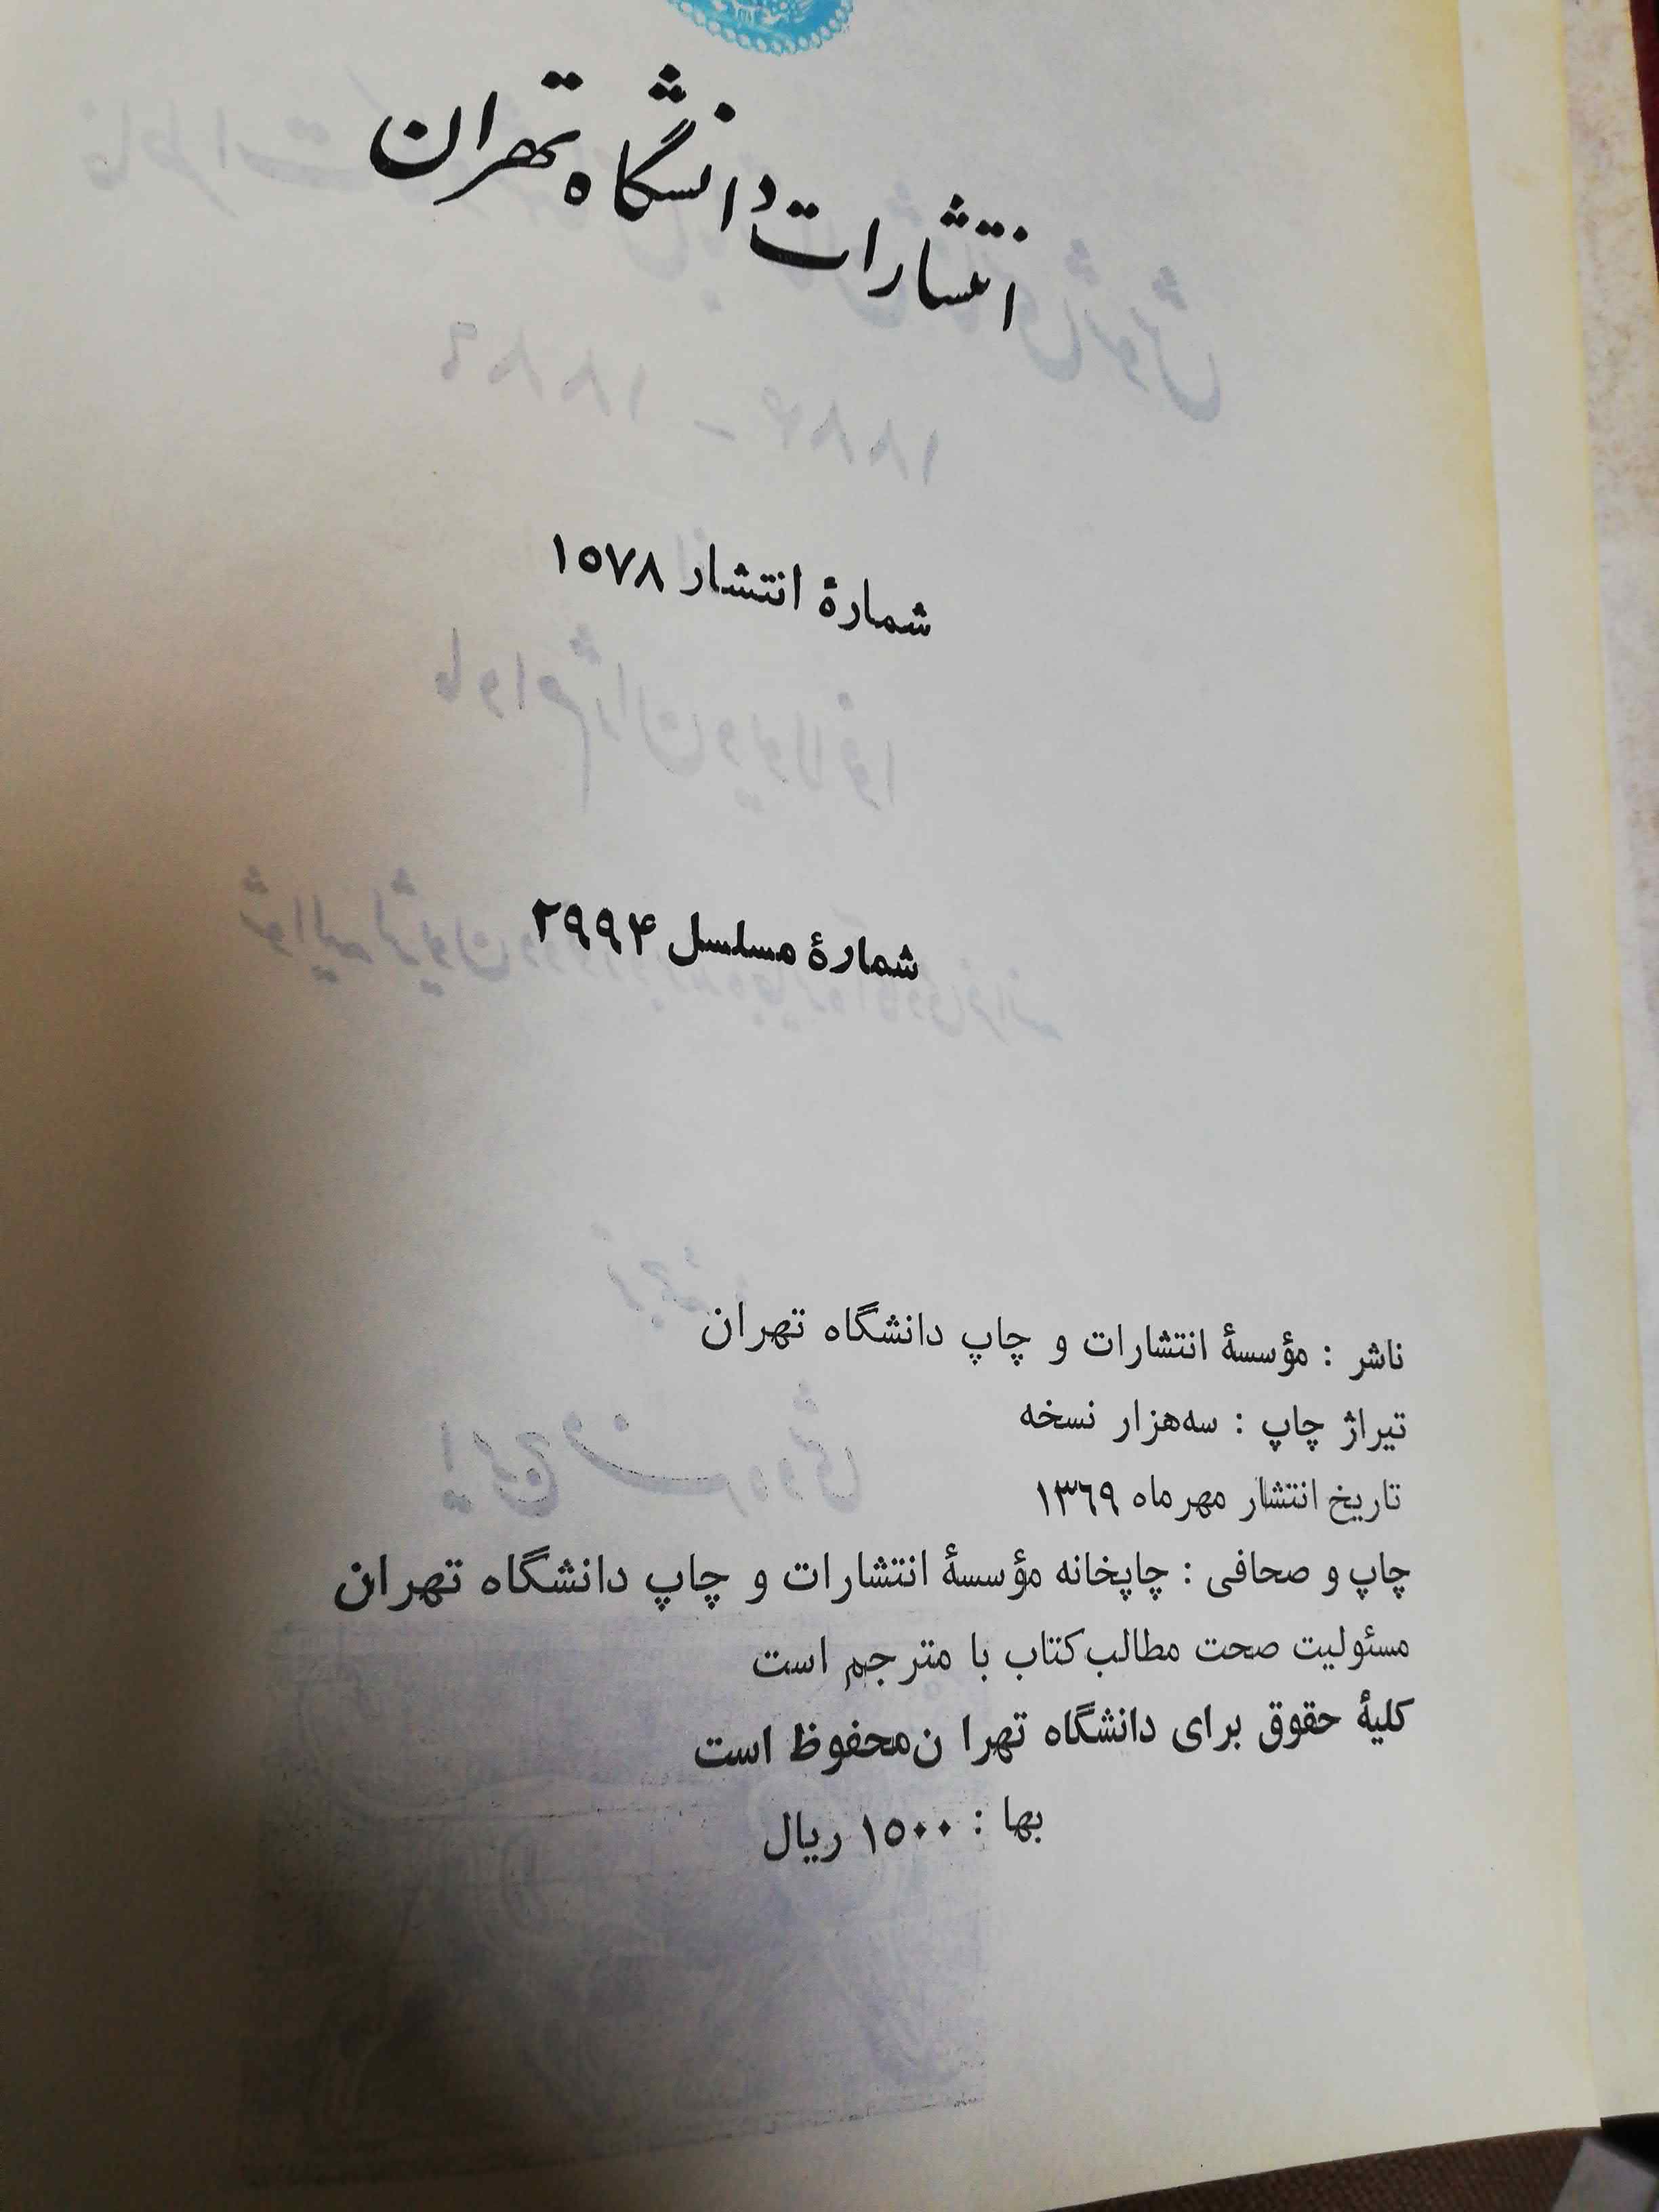 انتشارات دانشگاه تهران
شمارهٔ انتشار ۱۵۷۸
شمارهٔ مسلسل ۲۹۹۴
ناشر : مؤسسهٔ انتشارات و چاپ دانشگاه تهران
تیراژ چاپ : سه‌هزار نسخه
تاریخ انتشار مهرماه ۱۳۶۹
چاپ و صحافی : چاپخانه مؤسسهٔ انتشارات و چاپ دانشگاه تهران
مسئولیت صحت مطالب کتاب با مترجم است
کلیهٔ حقوق برای دانشگاه تهرا ن‌محفوظ است
بها : ۱۵۰۰ ریال